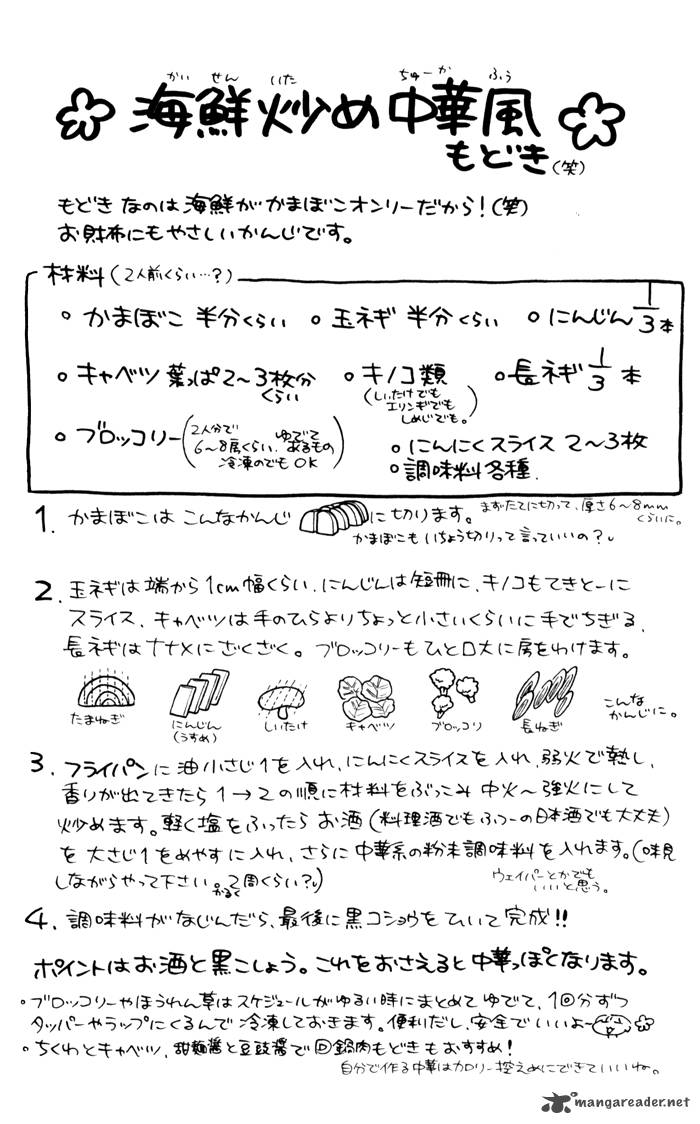 かい せん いた ちゅーか ふう
海鮮炒め中華風
もどき(笑)
もどきなのは海鮮がかまぼこオンリーだから!(笑)
お財布にもやさしいかんじです。
材料(2人前くらい…?)
◦かまぼこ 半分くらい ◦玉ネギ 半分くらい ◦にんじん1/3本
◦キャベツ 葉っぱ2〜3枚分くらい ◦キノコ類(しいたけでもエリンギでもしめじでも。) ◦長ネギ1/3本
◦ブロッコリー(2人分で6〜8房くらい、ゆでてあるもの 冷凍のでもOK) ◦にんにくスライス 2〜3枚
◦調味料各種.
1. かまぼこは こんなかんじ に切ります。まずたてに切って、厚さ6〜8mmくらいに。
かまぼこもいちょう切りって言っていいの?
2. 玉ネギは端から1cm幅くらい、にんじんは短冊に、キノコもてきとーに
スライス、キャベツは手のひらよりちょっと小さいくらいに手でちぎる、
長ネギはナナメにざくざく。ブロッコリーもひと口大に房をわけます。
たまねぎ にんじん(うすめ) しいたけ キャベツ ブロッコリ 長ねぎ こんなかんじに。
3. フライパンに油小さじ1を入れ、にんにくスライスを入れ、弱火で熱し、
香りが出てきたら1→2の順に材料をぶっこみ 中火〜強火にして
炒めます。軽く塩をふったら お酒(料理酒でもふつーの日本酒でも大丈夫)
を大さじ1をめやすに入れ、さらに中華系の粉末調味料を入れます。(味見
しながらやって下さい。かるく2周くらい?)
ウェイパーとかでもいいと思う。
4. 調味料がなじんだら、最後に黒コショウをひいて完成!!
ポイントはお酒と黒こしょう。これをおさえると中華っぽくなります。
◦ブロッコリーやほうれん草はスケジュールがゆるい時にまとめてゆでて、1回分ずつ
タッパーやラップにくるんで冷凍しておきます。便利だし、安全でいいよー
◦ちくわとキャベツ、甜麺醤と豆豉醤で回鍋肉もどきもおすすめ!
自分で作る中華はカロリー控えめにできていいね。
mangareader.net